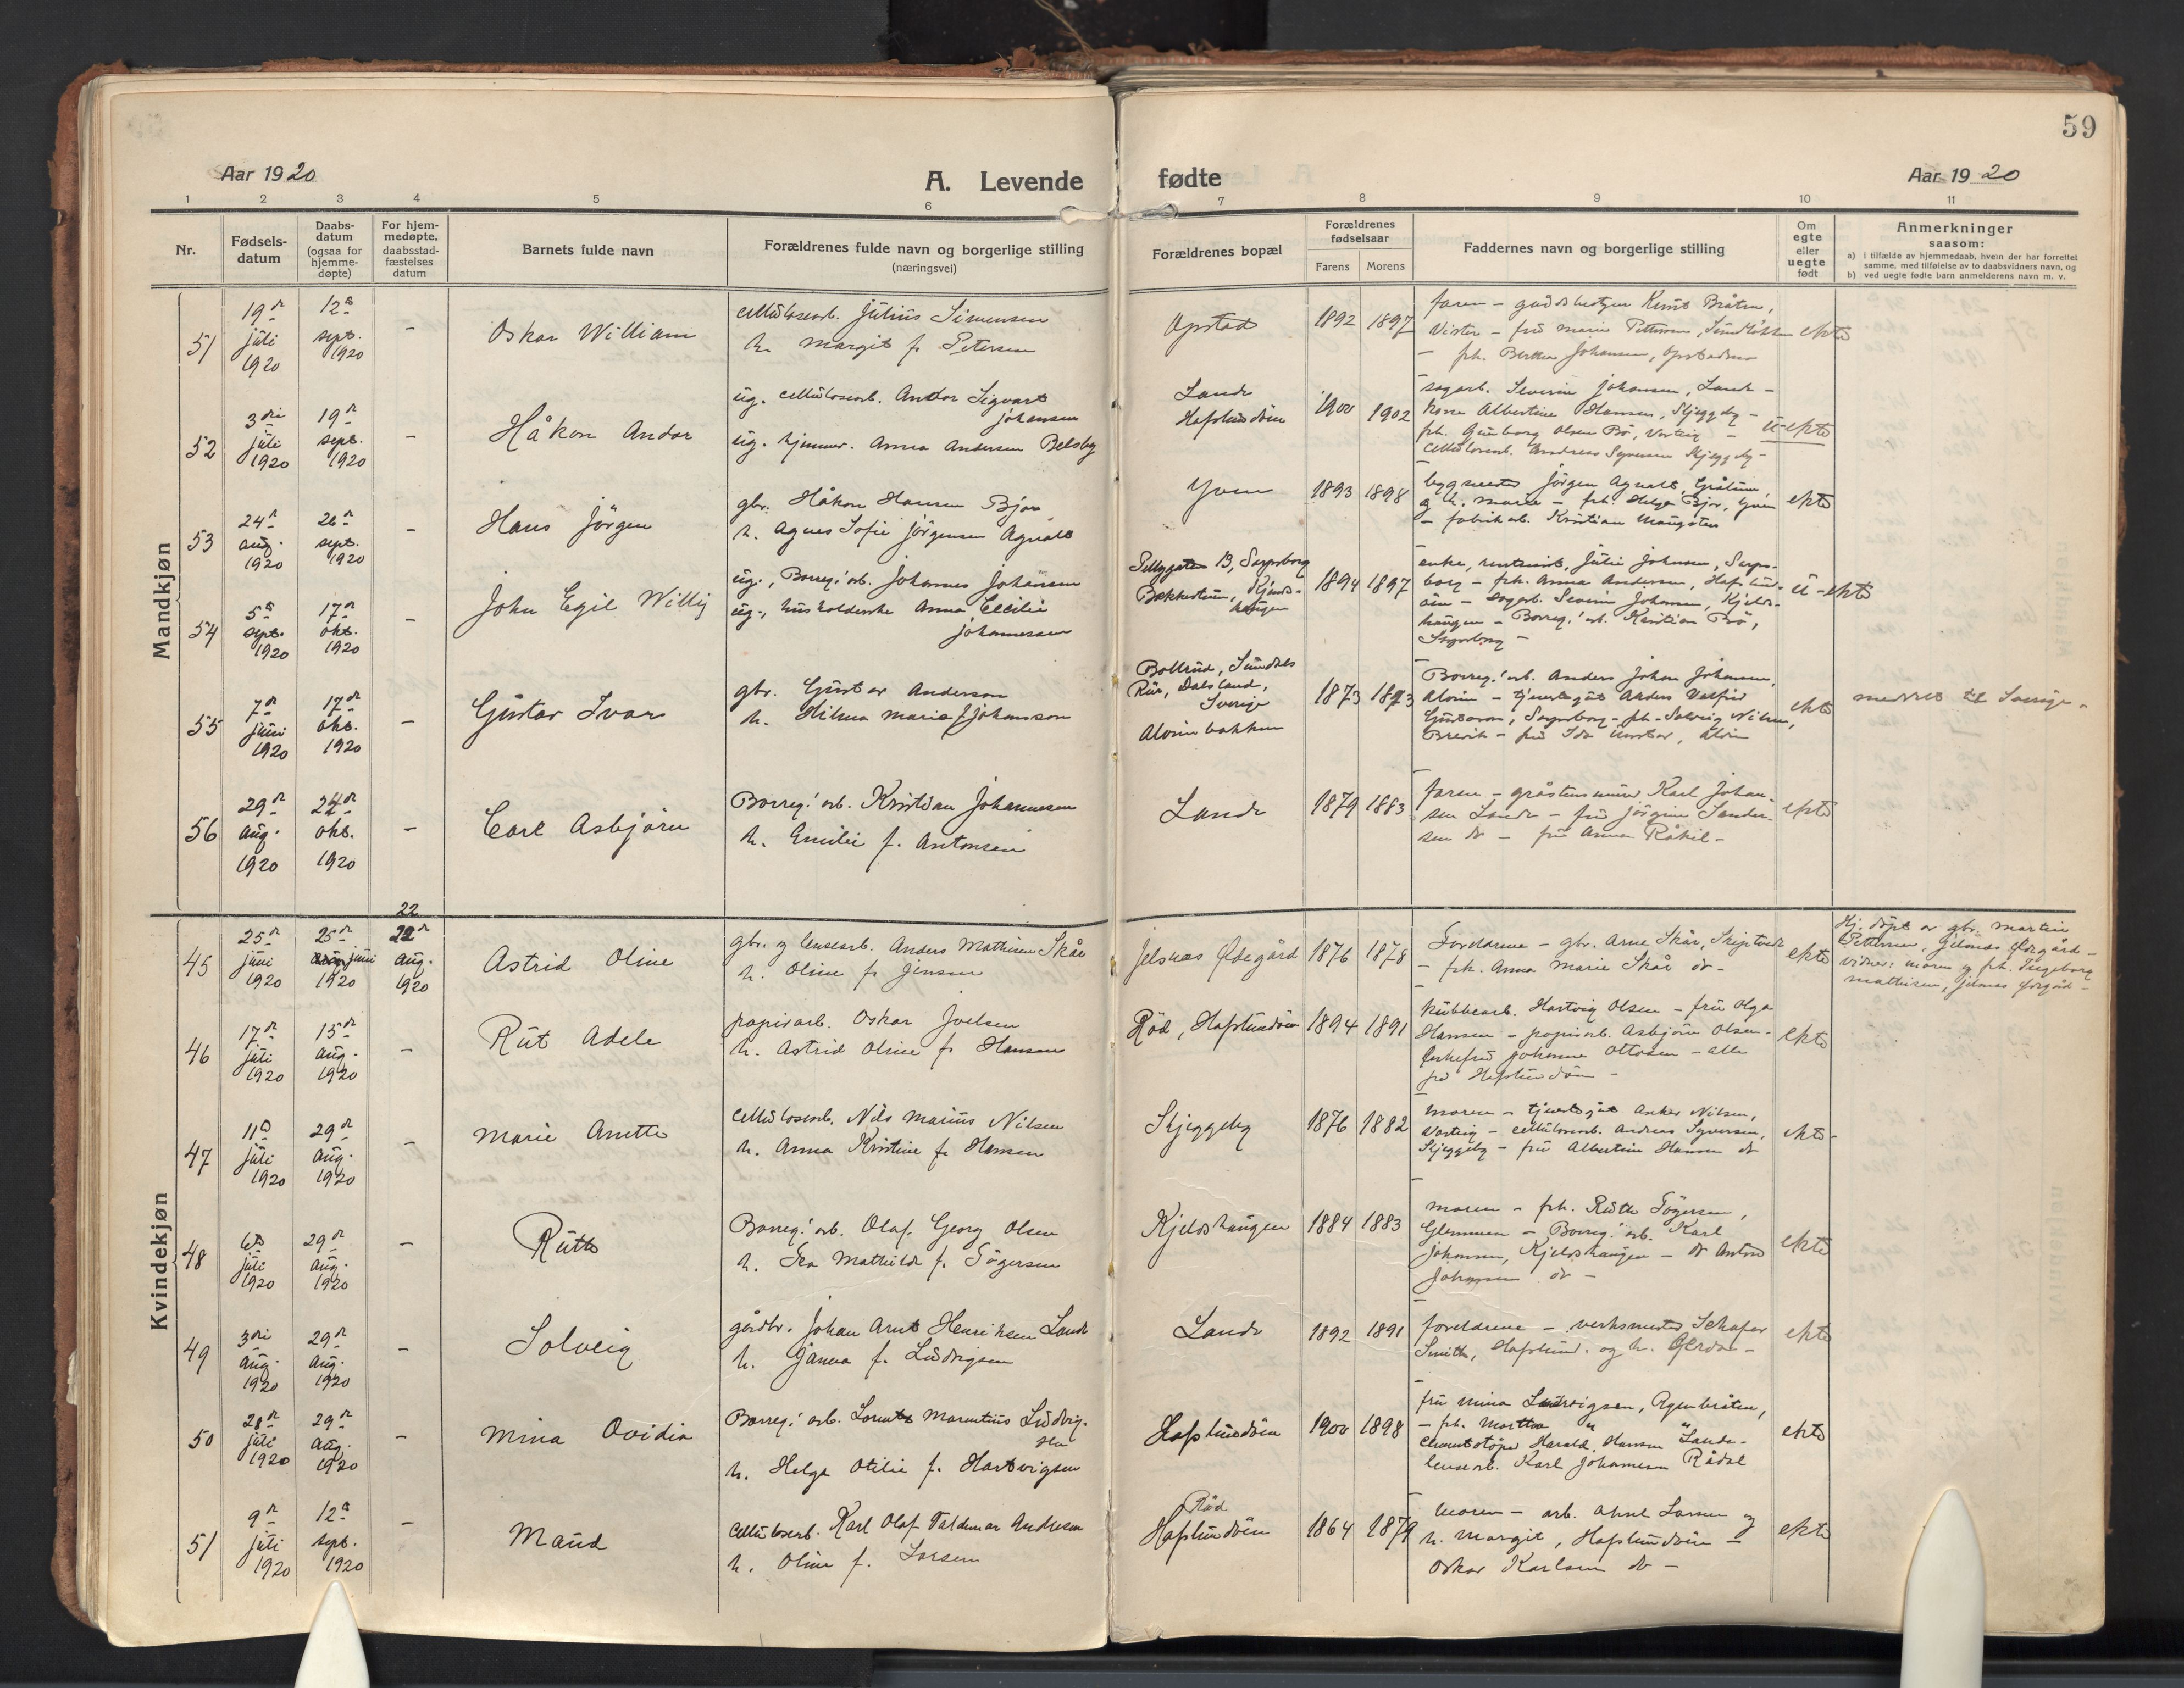 59
Aar 1920
A. Levende fødte
Aar 1920
1 2 3 4 5 6 7 8 9 10 11
Nr.
Fødsels-
datum
Daabs-
datum
(ogsaa for
hjemme-
døpte)
For hjem-
medøpte,
daabsstad-
fæstelses
datum
Barnets fulde navn
Forældrenes fulde navn og borgerlige stilling
(næringsvei)
Forældrenes bopæl
Forældrenes
fødselsaar
Farens Morens
Faddernes navn og borgerlige stilling
Om
egte
eller
uegte
født
Anmerkninger
saasom:
a) i tilfælde av hjemmedaab, hvem der har forrettet
samme, med tilføielse av to daabsvidners navn, og
b) ved uegte fødte barn anmelderens navn m. v.
Mandkjøn
51
19de
juli
1920
12te
sept.
1920
-
Oskar William
cellulosearb. Julius Simensen
h. Margit f. Petersen
Opstad
1892 1897
faren - gaardsbestyrer Knut Bråten,
Vister - fru Marie Pettersen,
- frk. Berthea Johansen,
ekte
52
3die
juli
1920
19de
sept.
1920
-
Håkon Andor
ug. cellulosearb. Andor Sigvart
Johansen
ug. hjemmev. Anna Andersen Belsby
Lande
Hafslundsöen
1900 1902
sagarb. Severin Johansen, Lande -
kone Albertine Hansen, Skjeggeby -
frk. Gunborg Olsen Bö, Varteig -
cellulosearb. Andreas Syversen Skjeggeby -
u-ekte
53
24de
aug.
1920
26de
sept.
1920
-
Hans Jörgen
gbr. Håkon Hansen Bjor
h. Agnes Sofie Jörgensen Agnalt
Yven
1893 1898
bygmester Jörgen Agnalt, Grålum,
og h. Marie - frk. Helga Bjor, Yven
- fabrikarb. Kristian Maugsten
ekte
54
5te
sept.
1920
17de
okt.
1920
-
John Egil Willy
ug., Borreg.' arb. Johannes Johansen
ug., husholderske Anna Cecilie
Johannessen
Pellygaten 13, Sarpsborg
Bakketun, Kjelds-
haugen
1894 1897
enke, Julie Johnsen, Sarps-
borg - frk. Anna Andersen, Hafslund-
öen - sagarb. Severin Johansen, Kjelds-
haugen - Borreg.' arb. Kristian Bö,
Sarpsborg -
u-ekte
55
7de
juni
1920
17de
okt.
1920
-
Gustav Ivar
gbr. Gustav Anderson
h. Hilma Maria f. Johansson
Bollrud, Sundals
Rur, Dalsland,
Sverige
Alvimbakken
1873 1893
Borreg.' arb. Anders Johan Johansen,
Alvim - tjenestegut Anders Valfrid
Gustavson, Sarpsborg - frk. Solveig Nilsen,
Brevik - fru Ida, Alvim
ekte
meldt til Sverige.
56
29de
aug.
1920
24de
okt.
1920
-
Carl Asbjørn
Borreg.' arb. Kristian Johannesen
h. Emilie f. Antonsen
Lande
1879 1883
faren - gråstensmurer Karl Johan-
sen Lande - fru Jörgine Sander-
sen do - fru Anna Råkil -
ekte
Kvindekjøn
45
25de
juni
1920
25de
juni
1920
22
22de
aug.
1920
Astrid Oline
gbr. og lensearb. Anders Mathisen Skår
h. Oline f. Jensen
Jelsnes Ødegård
1876 1878
Foreldrene - gbr. Arne Skår, Skiptvedt
- frk. Anna Marie Skår do -
ekte
Hj. döpt av gbr. Martin
Pettersen, Gjelsnes Ødegård -
vidner: moren og frk. Ingeborg
Mathisen, Jelsnes Ødegård -
46
17de
juli
1920
15de
aug.
1920
-
Rut Adele
papirarb. Oskar Joelsen
h. Astrid Oline f. Hansen
Röd, Hafslundsöen
1894 1891
kubbearb. Hartvig Olsen - fru Olga
Hansen - papirarb. Asbjörn Olsen -
enkefru Johanne Ottosen - alle
på Hafslundsöen -
ekte
47
11te
juli
1920
29de
aug.
1920
-
Marie Anette
cellulosearb. Nils Marius Nilsen
h. Anna Kristine f. Hansen
Skjeggeby
1876 1882
moren - tjenestegut Anker Nilsen,
Varteig - cellulosearb. Andreas Syversen,
Skjeggeby - fru Albertine Hansen do
ekte -
48
6te
juli
1920
29de
aug.
1920
-
Ruth
Borreg.' arb. Olaf Georg Olsen
h. Mathilde f. Tögersen
Kjeldshaugen
1884 1883
moren - frk. Ruth Tögersen,
Glemmen - Borreg.' arb. Karl
Johansen, Kjeldshaugen - do Anton
Johansen do -
ekte
49
3die
aug.
1920
29de
aug.
1920
-
Solveig
gårdbr. Johan Arnt Henriksen Lande
h. Janna f. Ludvigsen
Lande
1892 1891
foreldrene - verksmester Schafer
Smith, Hafslund. og h. Gerda -
ekte
50
28de
juli
1920
29de
aug.
1920
-
Mina Ovidia
Borreg.' arb. Lorentz Marentius Ludvig-
sen
h. Helga Otilie f. Hartvigsen
Hafslundsöen
1900 1898
fru Mina Ludvigsen, Agenbråten,
- frk. Martha "
cementstöper Harald Hansen Lande -
lensearb. Karl Johannesen Rådal
ekte
51
9de
juli
1920
12te
sept.
1920
-
Maud
cellulosearb. Karl Olaf Valdemar Andresen
h. Oline f. Larsen
Röd
Hafslundsöen
1864 1879
moren - arb. Aksel Larsen og
h. Margit, Hafslundsöen -
Oskar Karlsen do -
ekte